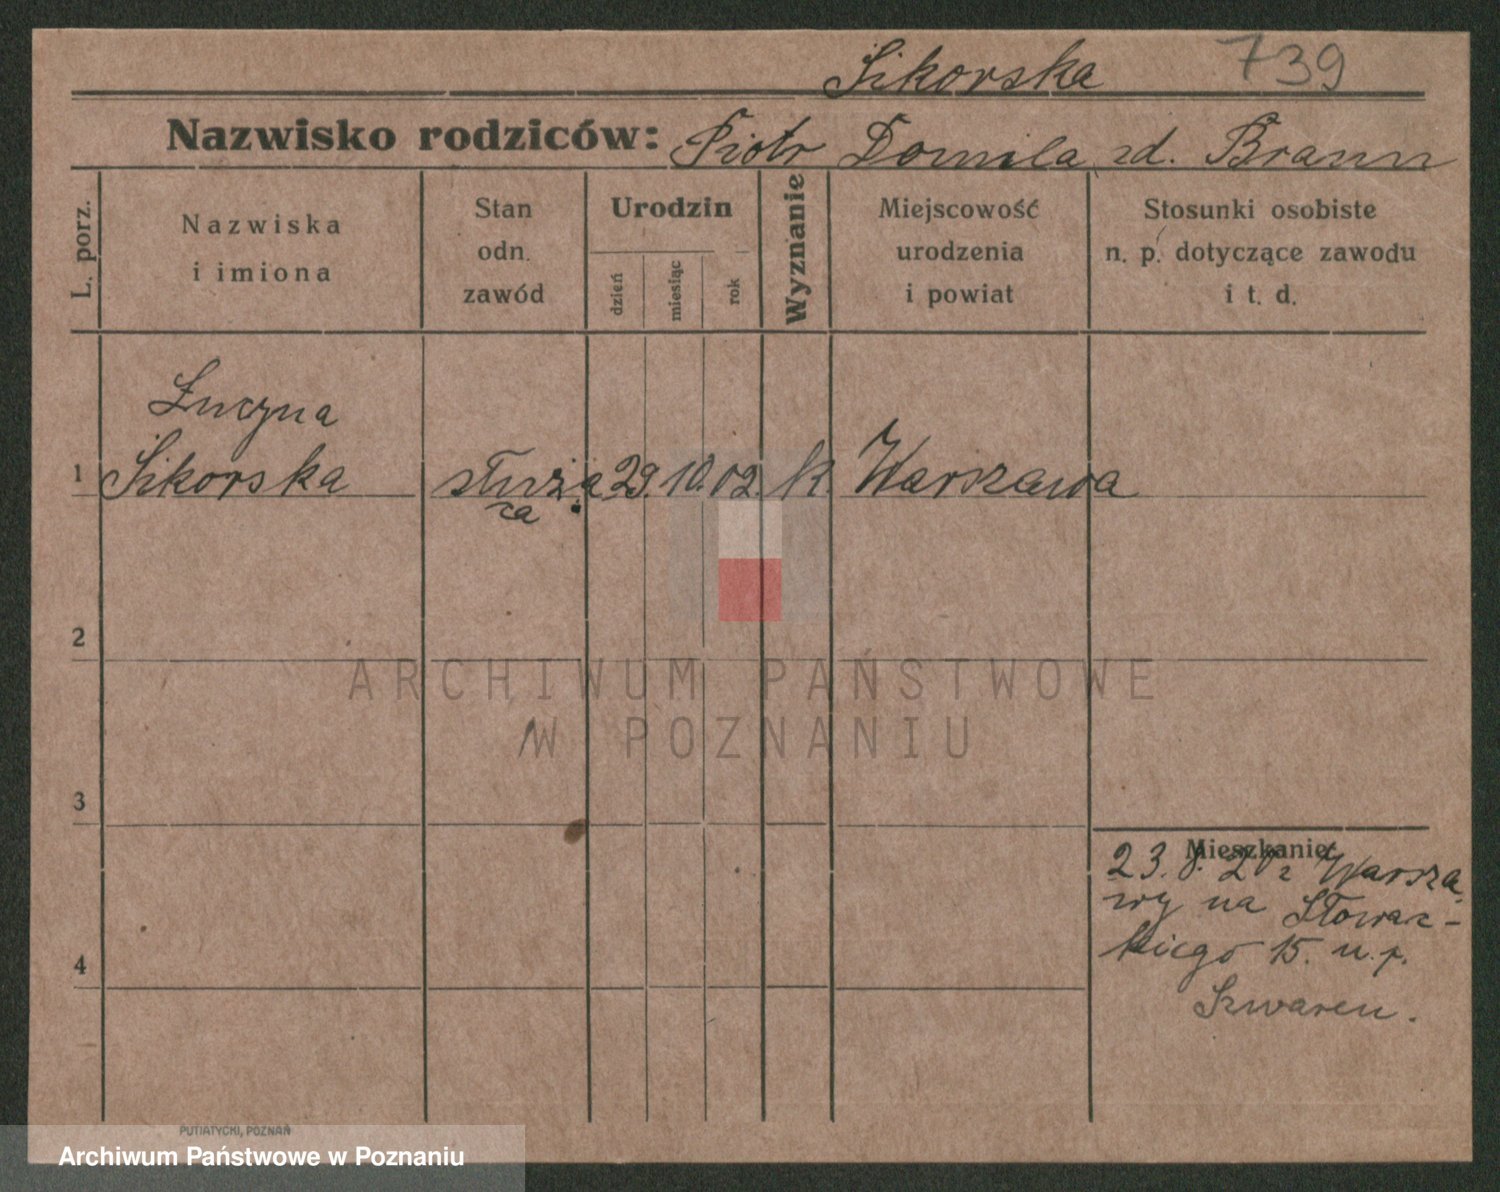 Sikorska 739
Nazwisko rodziców: Piotr Domila zd. Brann
L. porz.
Nazwiska
i imiona
Stan
odn.
zawód
Urodzin
dzień
miesiąc
rok
Wyznanie
Miejscowość
urodzenia
i powiat
Stosunki osobiste
n. p. dotyczące zawodu
i t. d.
Łucyna
1 Sikorska służą 29. 10. 02. k. Warszawa
ca
2
ARCHIWUM PAŃSTWOWE
W POZNANIU
3
Mieszkanie
23. 8. 20 z Warsza
wy na Słowac-
kiego 15. u. p.
4
Szwaren.
PUTIATYCKI, POZNAŃ
Archiwum Państwowe w Poznaniu